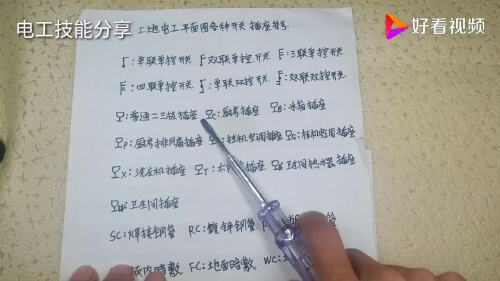 电工技能分享
好看视频
工地电工平面图各种开关插座符号
单联单控开关 双联单控开关 三联单控开关
四联单控开关 单联双控开关 双联双控开关
普通二三极插座 C:厨房插座 B:冰箱插座
P:厨房排风扇插座 挂机空调插座 G:柜机空调插座
X:洗衣机插座 T: 插座 卫生间热水器插座
卫生间插座
SC:焊接钢管 RC:镀锌钢管 管
板内暗敷 FC:地面暗敷 WC: